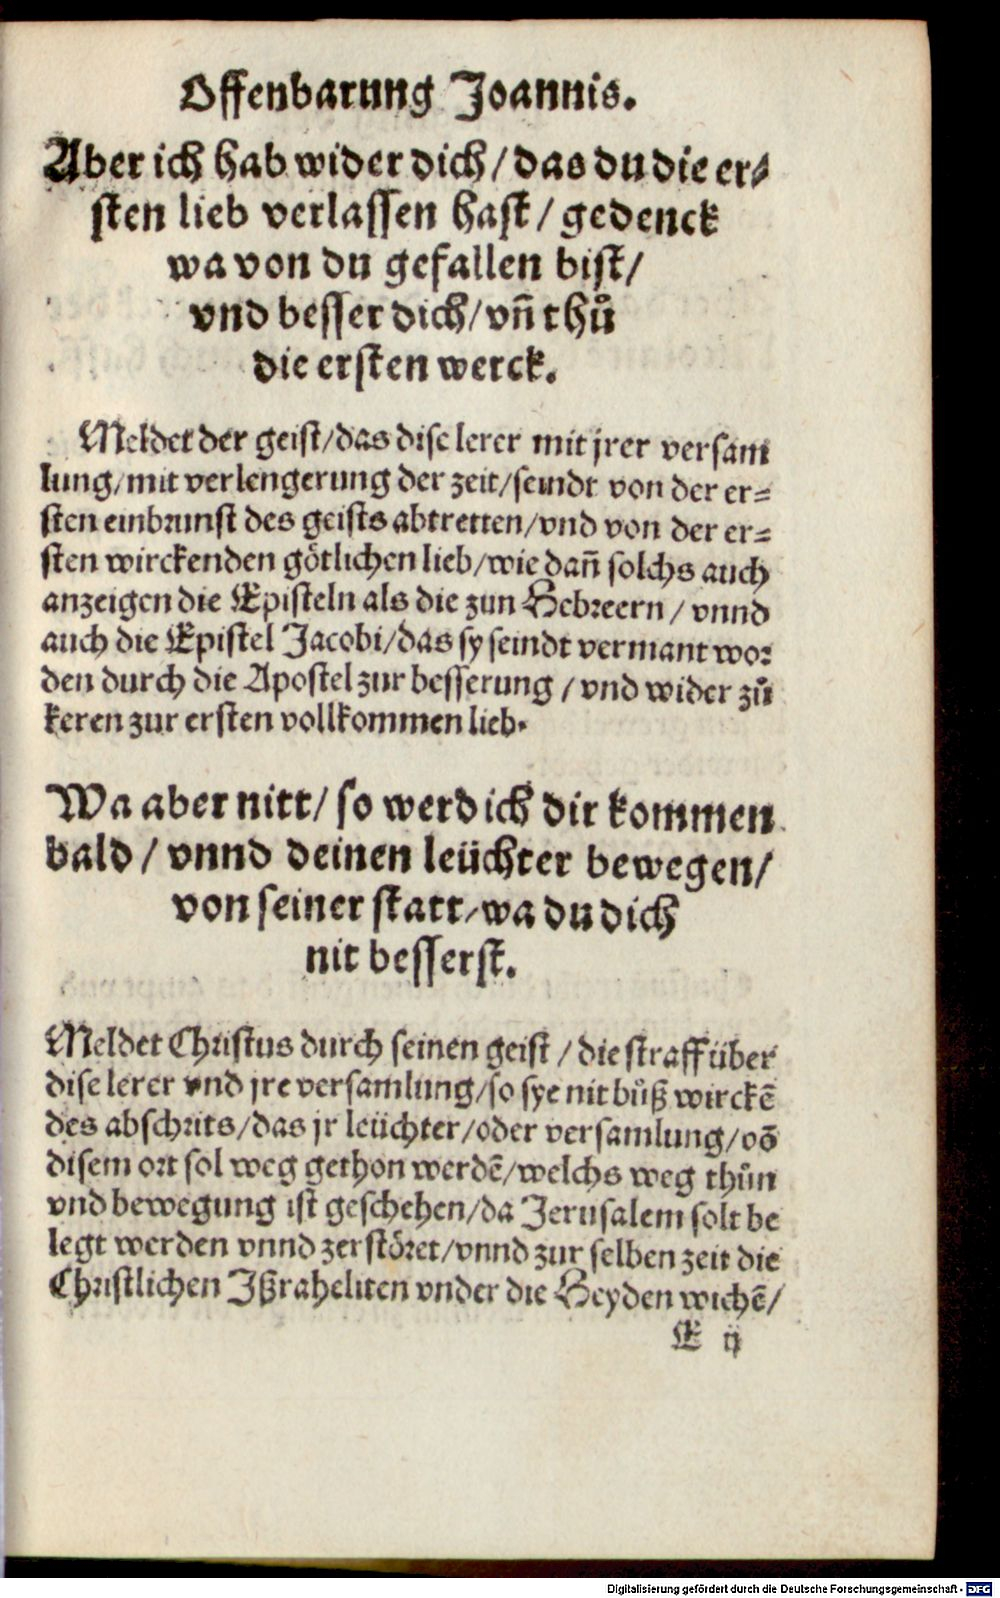 Offenbarung Joannis.
Aber ich hab wider dich / das du die er⸗
sten lieb verlassen hast / gedenck
wa von du gefallen bist /
vnd besser dich / vñ thů
die ersten werck.
Meldet der geist / das dise lerer mit jrer versam
lung / mit verlengerung der zeit / seindt von der er⸗
sten einbrunst des geists abtretten / vnd von der er⸗
sten wirckenden götlichen lieb / wie dañ solchs auch
anzeigen die Episteln als die zun Hebreern / vnnd
auch die Epistel Jacobi / das sy seindt vermant wor
den durch die Apostel zur besserung / vnd wider zů
keren zur ersten vollkommen lieb.
Wa aber nitt / so werd ich dir kommen
bald / vnnd deinen leüchter bewegen /
von seiner statt / wa du dich
nit besserst.
Meldet Christus durch seinen geist / die straff über
dise lerer vnd jre versamlung / so sye nit bůß wirckē
des abschrits / das jr leüchter / oder versamlung / võ
disem ort sol weg gethon werdē / welchs weg thůn
vnd bewegung ist geschehen / da Jerusalem solt be
legt werden vnnd zerstöret / vnnd zur selben zeit die
Christlichen Jßraheliten vnder die Heyden wichē /
E ij
Digitalisierung gefördert durch die Deutsche Forschungsgemeinschaft - DFG